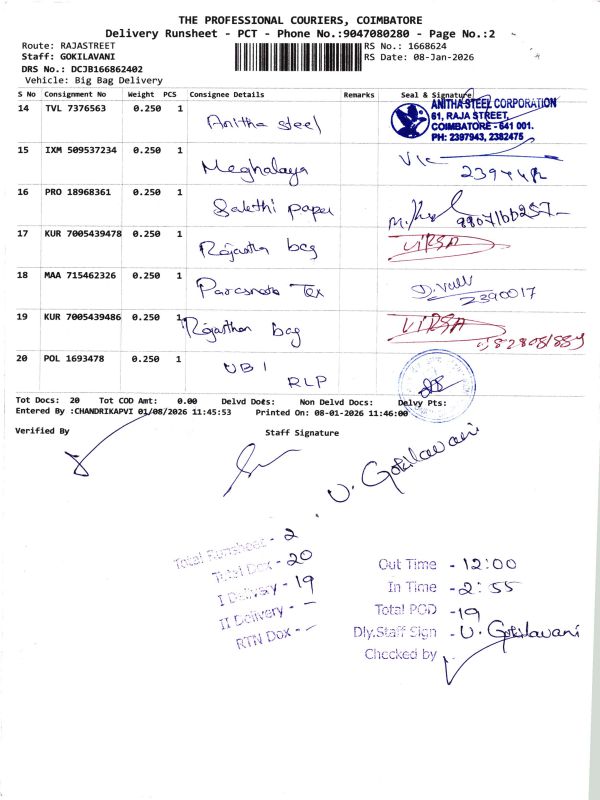 THE PROFESSIONAL COURIERS, COIMBATORE
Delivery Runsheet - PCT - Phone No.:9047080280 - Page No.:2
Route: RAJASTREET
RS No.: 1668624
Staff: GOKILAVANI
RS Date: 08-Jan-2026
DRS No.: DCJB166862402
Vehicle: Big Bag Delivery
S No Consignment No Weight PCS Consignee Details Remarks Seal & Signature
14 TVL 7376563 0.250 1 Anitha steel
ANITHA STEEL CORPORATION
61, RAJA STREET,
COIMBATORE - 641 001.
PH: 2397943, 2382475
15 IXM 509537234 0.250 1 Meghalaya
16 PRO 18968361 0.250 1 Sakthi paper
17 KUR 7005439478 0.250 1 Rajasthan bag VIRSA
18 MAA 715462326 0.250 1 Tex
2390017
19 KUR 7005439486 0.250 1 Rajasthan bag VIRSA
20 POL 1693478 0.250 1 UBI
RLP
Tot Docs: 20 Tot COD Amt: 0.00 Delvd Docts: Non Delvd Docs: Delvy Pts:
Entered By :CHANDRIKAPVI 01/08/2026 11:45:53 Printed On: 08-01-2026 11:46:00
Verified By Staff Signature
U. Gokilavani
Total Runsheet - 2
Total Dox - 20
I Delivery - 19
II Delivery - -
RTN Dox - -
Out Time - 12:00
In Time - 2:55
Total POD - 19
Dly.Staff Sign - U. Gokilavani
Checked by